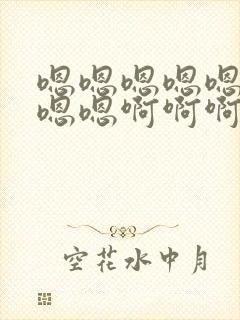 嗯嗯嗯嗯嗯
嗯嗯啊啊啊
空花水中月